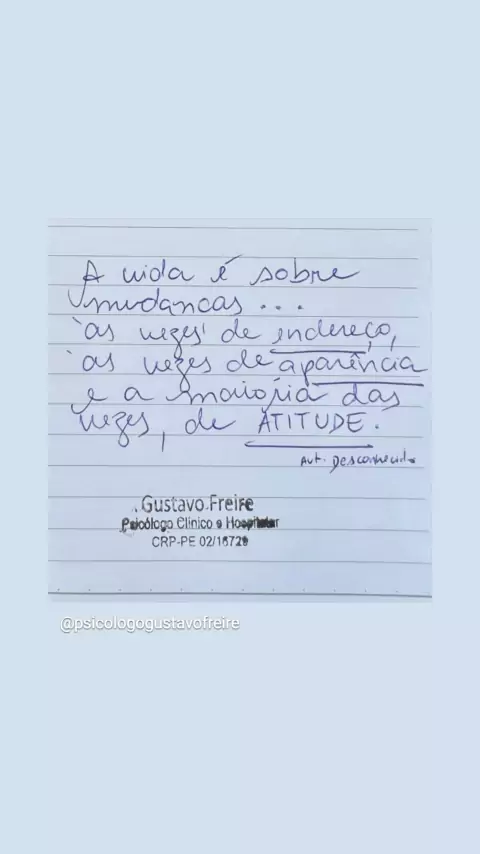 A vida é sobre
mudancas...
às vezes de endereço,
às vezes de aparência
e a maioria das
vezes, de ATITUDE.
Aut. Desconhecido
Gustavo Freire
Psicólogo Clínico e Hospitalar
CRP-PE 02/16729
@psicologogustavofreire